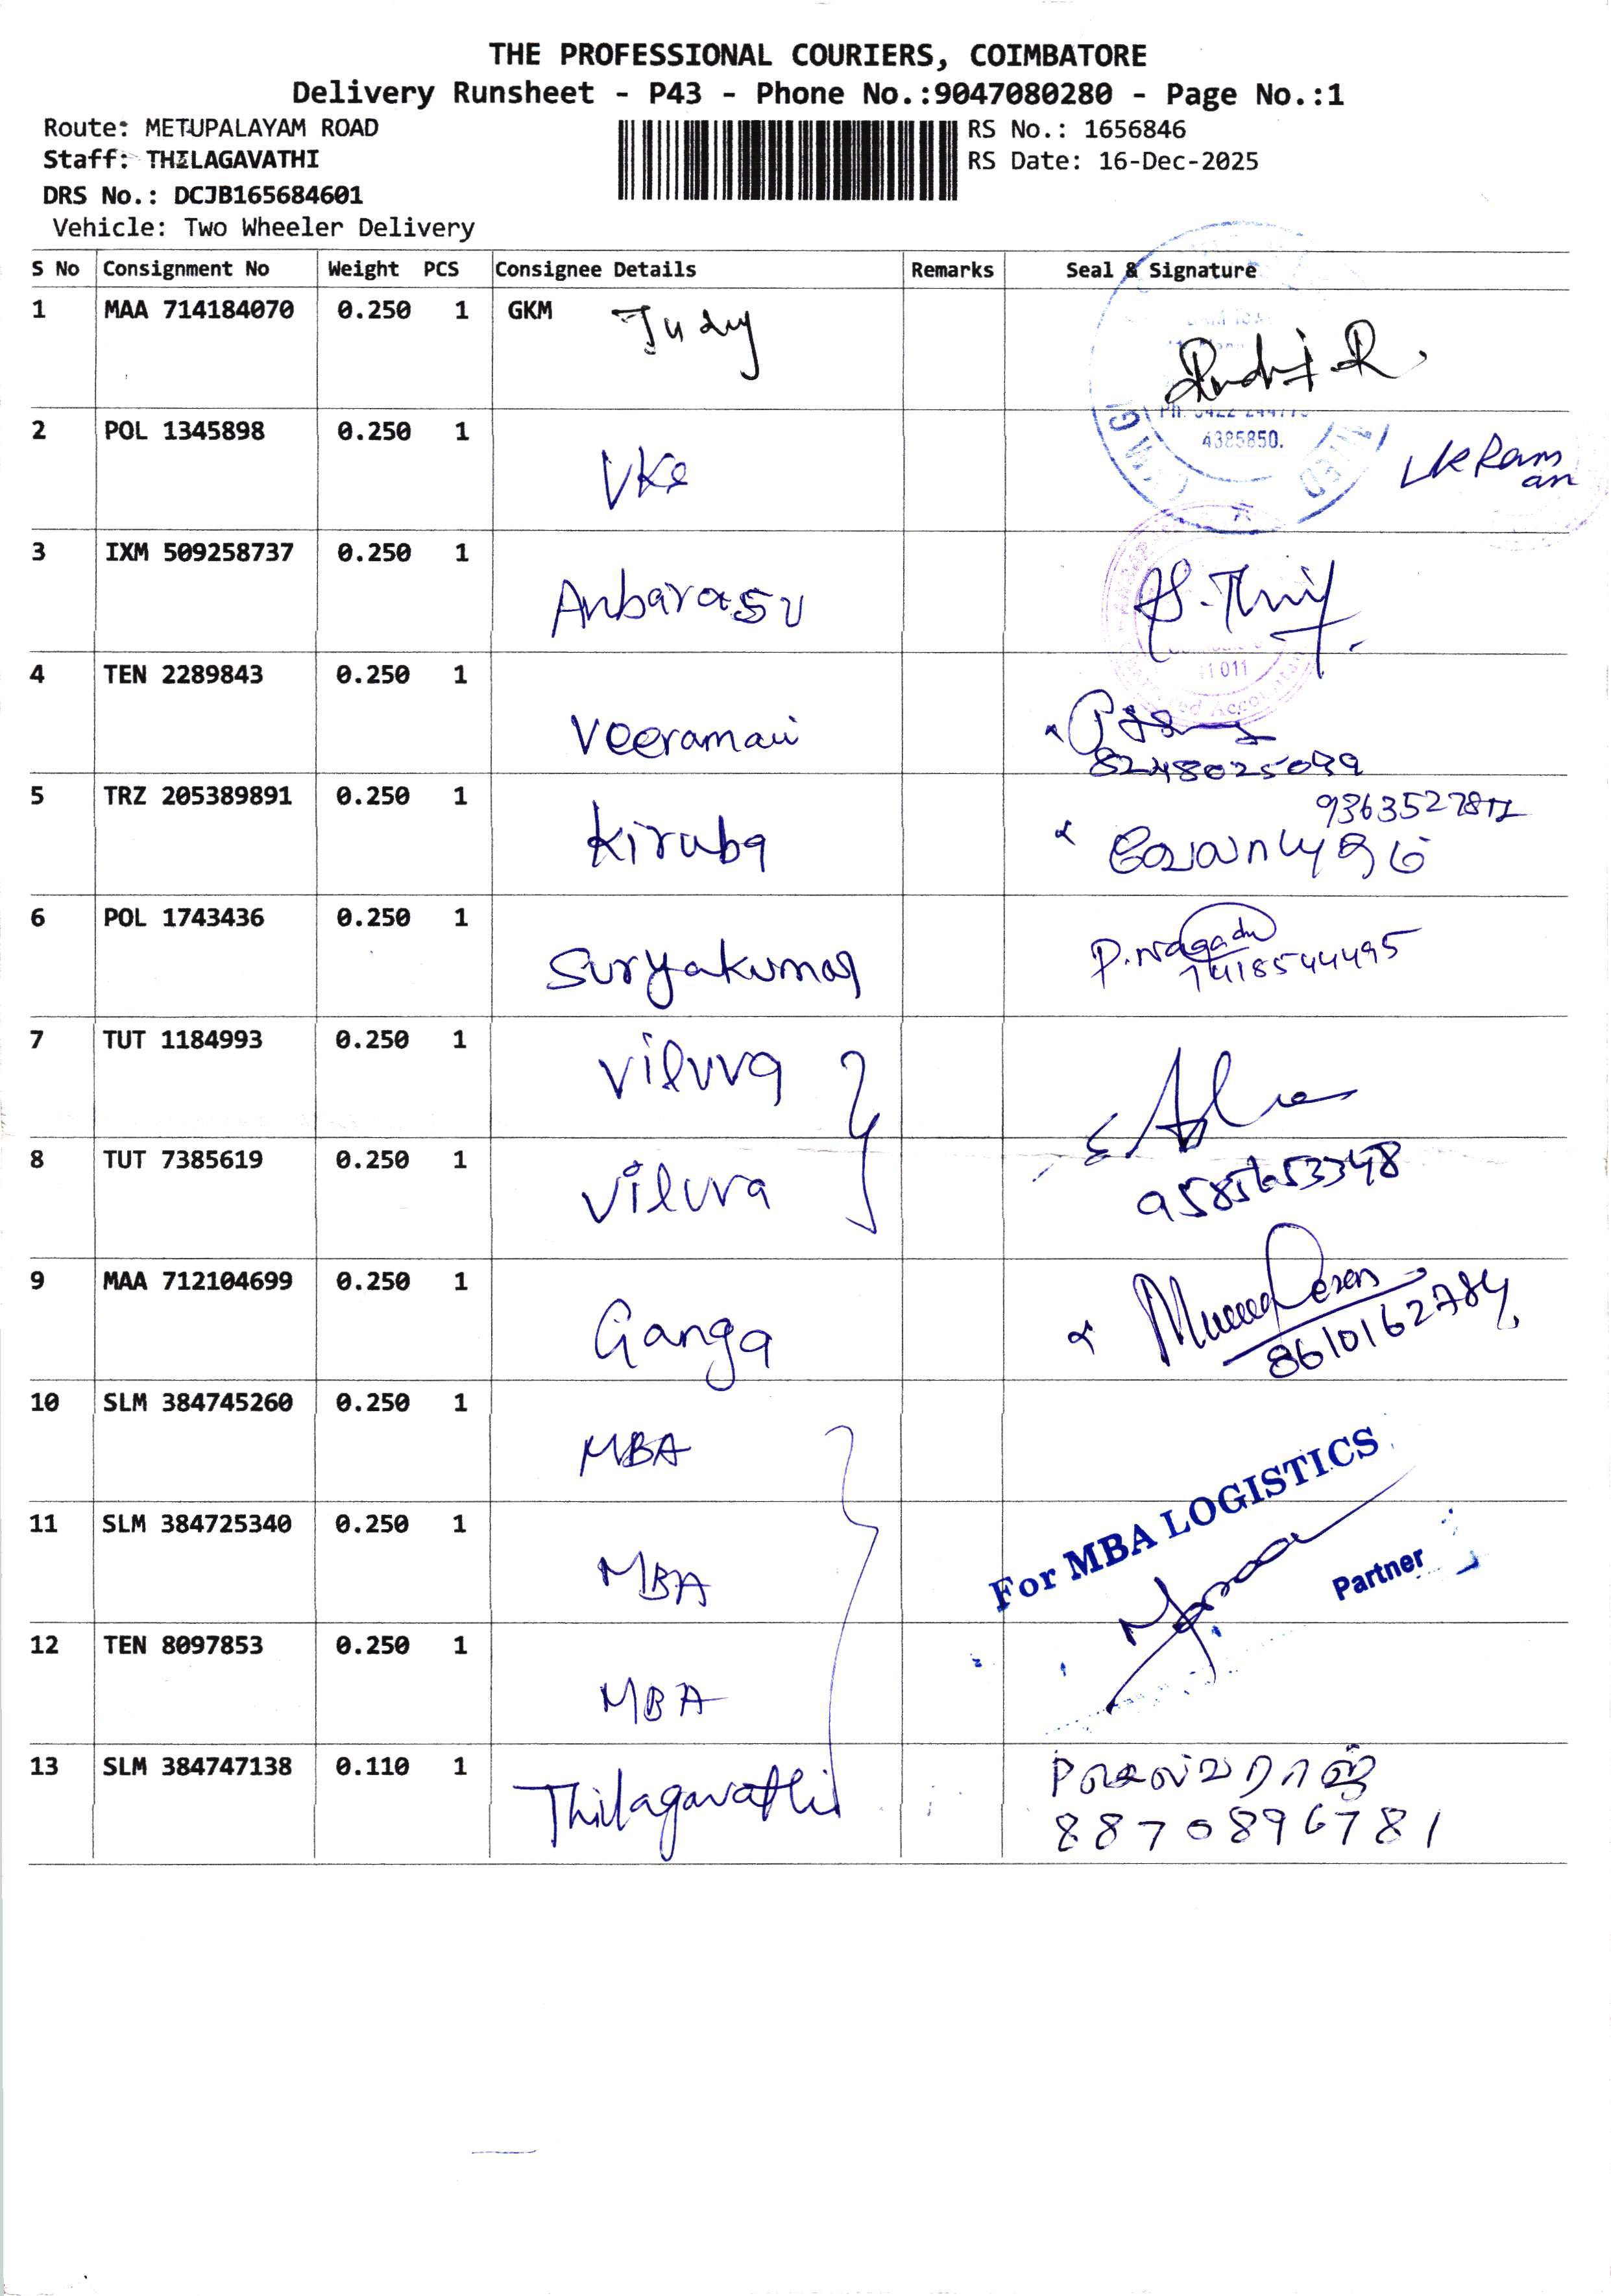 THE PROFESSIONAL COURIERS, COIMBATORE
Delivery Runsheet - P43 - Phone No.:9047080280 - Page No.:1
Route: METUPALAYAM ROAD
RS No.: 1656846
Staff: THILAGAVATHI
RS Date: 16-Dec-2025
DRS No.: DCJB165684601
Vehicle: Two Wheeler Delivery
S No Consignment No Weight PCS Consignee Details Remarks Seal & Signature
1 MAA 714184070 0.250 1 GKM Judy
2 POL 1345898 0.250 1
4385850.
3 IXM 509258737 0.250 1 Anbarasu
4 TEN 2289843 0.250 1 Veeramani
8248025099
5 TRZ 205389891 0.250 1 Kiruba
6 POL 1743436 0.250 1 Suryakumar
7418544495
7 TUT 1184993 0.250 1 Viluva
8 TUT 7385619 0.250 1 Viluva
9 MAA 712104699 0.250 1 Ganga
8610162784
10 SLM 384745260 0.250 1 MBA
For MBA LOGISTICS
11 SLM 384725340 0.250 1 MBA
Partner
12 TEN 8097853 0.250 1 MBA
13 SLM 384747138 0.110 1 Thilagavathi
8870896781